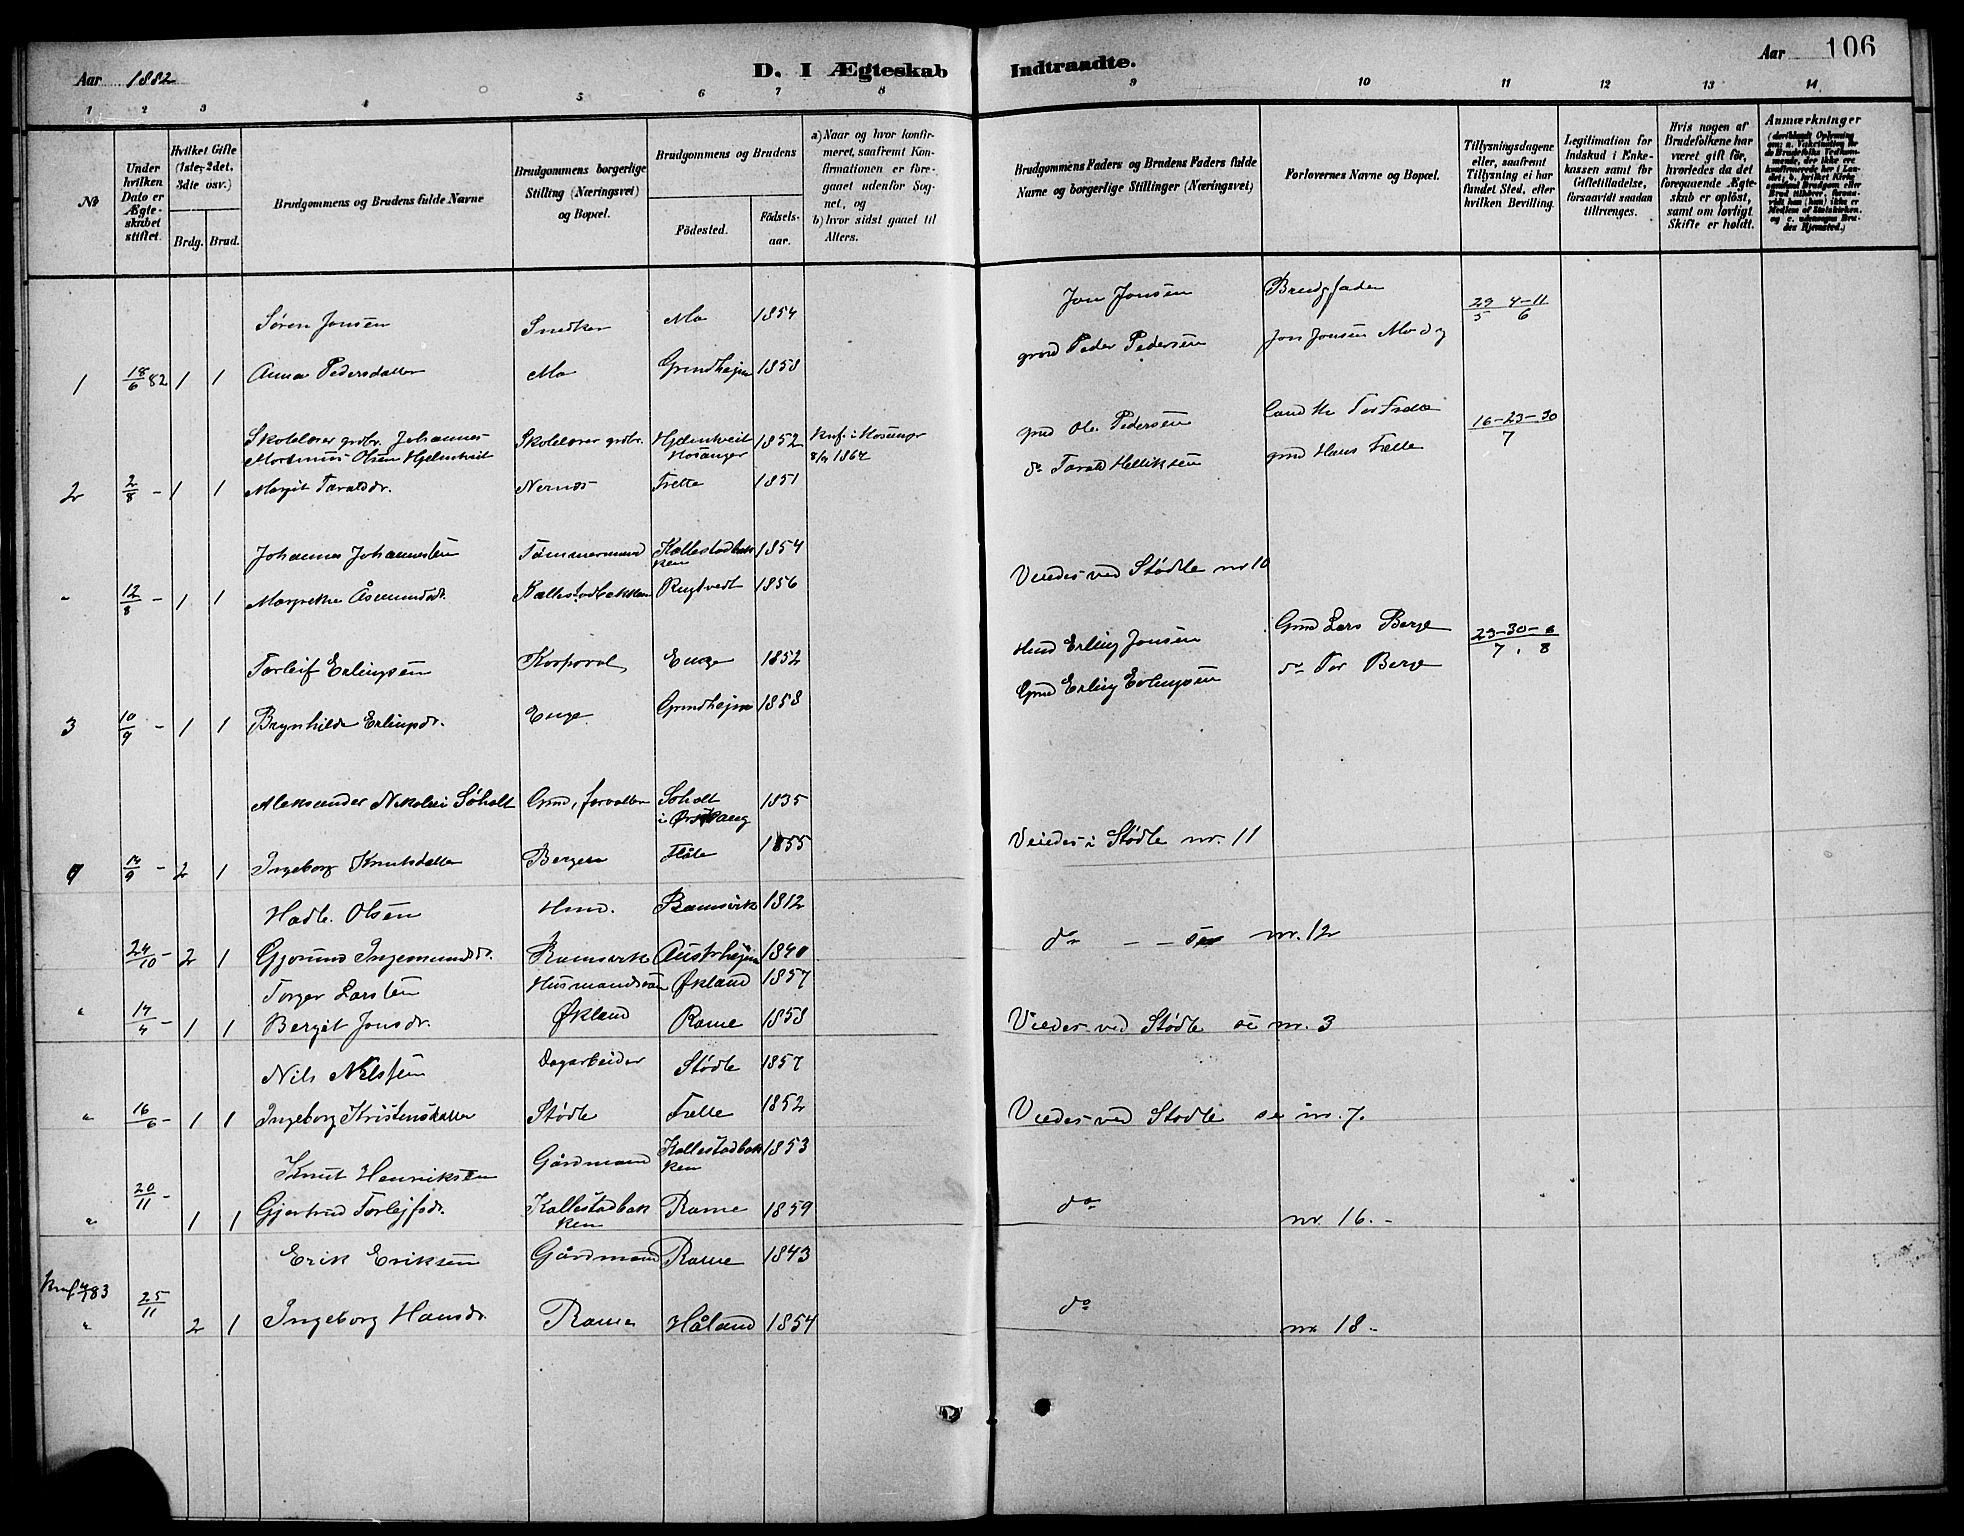 Aar 1882
D. I Ægteskab Indtraadte.
Aar 106
1 2 3 4 5 6 7 8 9 10 11 12 13 14
No
Under hvilken Dato er Ægteskabet stiftet.
Hvilket Gifte (1ste, 2det, 3die osv.)
Brdg. Brud.
Brudgommens og Brudens fulde Navne
Brudgommens borgerlige Stilling (Næringsvei) og Bopæl.
Brudgommens og Brudens
Födested.
Födselsaar.
a) Naar og hvor konfirmeret, saafremt Konfirmationen er foregaaet udenfor Sognet, og
b) hvor sidst gaaet til Alters.
Brudgommens Faders og Brudens Faders fulde Navne og borgerlige Stillinger (Næringsvei)
Forlovernes Navne og Bopæl.
Tillysningsdagene eller, saafremt Tillysning ei har fundet Sted, efter hvilken Bevilling.
Legitimation for Indskud i Enkekassen samt for Giftetilladelse, forsaavidt saadan tiltrænges.
Hvis nogen af Brudefolkene har været gift för, hvorledes da det foregaaende Ægteskab er oplöst, samt om lovligt Skifte er holdt.
Anmærkninger
Søren Jonsen Snedker Mo 1854 Jon Jonsen 29/5 4-11/6
1 18/6 82 1 1 Anna Pedersdatter Mo Grindhejm 1858 Peder Pedersen Jon Jonsen
Skolelærer grdbr. Johannes Skolelærer grdbr. Hjelmtveit 1852 Knf. i Hosangr Ole Pedersen 16-23-30/7
Mortinus Olsen Hjelmtveit Hosanger 1867 do Tarald Helliksen Hans Fatle
2 2/8 - 1 1 Margit Taraldsdr. Nernæs 1851
Johannes Johannessen Tømmermand Kallestadbakken 1854
" 12/8 - 1 1 Margrethe Åsmundsdr. Kallestadbakken Rugtvedt 1856 Viedes ved Stødle nr 10
Torleif Erlingsen Korporal Enge 1852 Hmd Erling Jonsen Grmd Lars Berge 23-30/7 6/8
3 10/9 - 1 1 Brynhilde Erlingsdr. Enge Grindhejm 1858 Grmd Erling Erlingsen do Tor Berge
Aleksander Nikolai Søholt Grmd, forvalter Søholt i Ørskoug 1835
14/9 - 2 1 Ingeborg Knutsdatter Bergen Flåte 1855 Viedes i Stødle nr. 11
Hadle Olsen Hmd. Ramsvik 1812
24/10 - 2 1 Gjorund Ingemundsdr. Ramsvik Austrhejm 1840 do - - nr. 12
Torger Larsen Husmandssøn Økland 1857
" 14/4 - 1 1 Bergit Jonsdr. Økland Rame 1858 Viedes ved Stødle se nr. 3
Nils Nilsen Dagarbeider Stødle 1857
" 16/6 - 1 1 Ingeborg Kristensdatter Stødle 1852 Viedes ved Stødle se nr. 7.
Knut Henriksen Gårdmand Kallestadbakken 1853
" 20/11 - 1 1 Gjertrud Torlejfsdr. Kallestadbakken Rame 1859 do nr. 16. -
Erik Eriksen Gårdmand Rame 1843
" 25/11 2 1 Ingeborg Hansdr. Rame Håland 1854 do nr 18 -